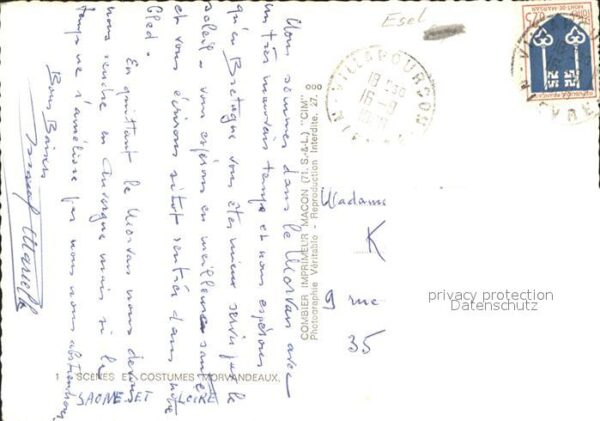 Nous sommes dans le Morvan avec
un très mauvais temps et nous espérons
qu'en Bretagne vous êtes mieux servis par le
soleil - vous espérons en meilleure santé
et vous écrirons sitôt rentrés dans notre
Bled.
En quittant le Morvan nous devons
nous rendre en Auvergne mais si le
temps ne s'améliore pas nous nous abstiendrons
Bons Baisers
Esel
VILLAPOURÇON
18 H
16 - 9
NIÈVRE
0,25
MONT-DE-MARSAN
COMBIER IMPRIMEUR MACON (71. S.-&-L.) "CIM"
Photographie Véritable - Reproduction Interdite. 27.
Madame
K
9 rue
35
privacy protection
Datenschutz
1 SCÈNES ET COSTUMES MORVANDEAUX.
SAONE ET LOIRE